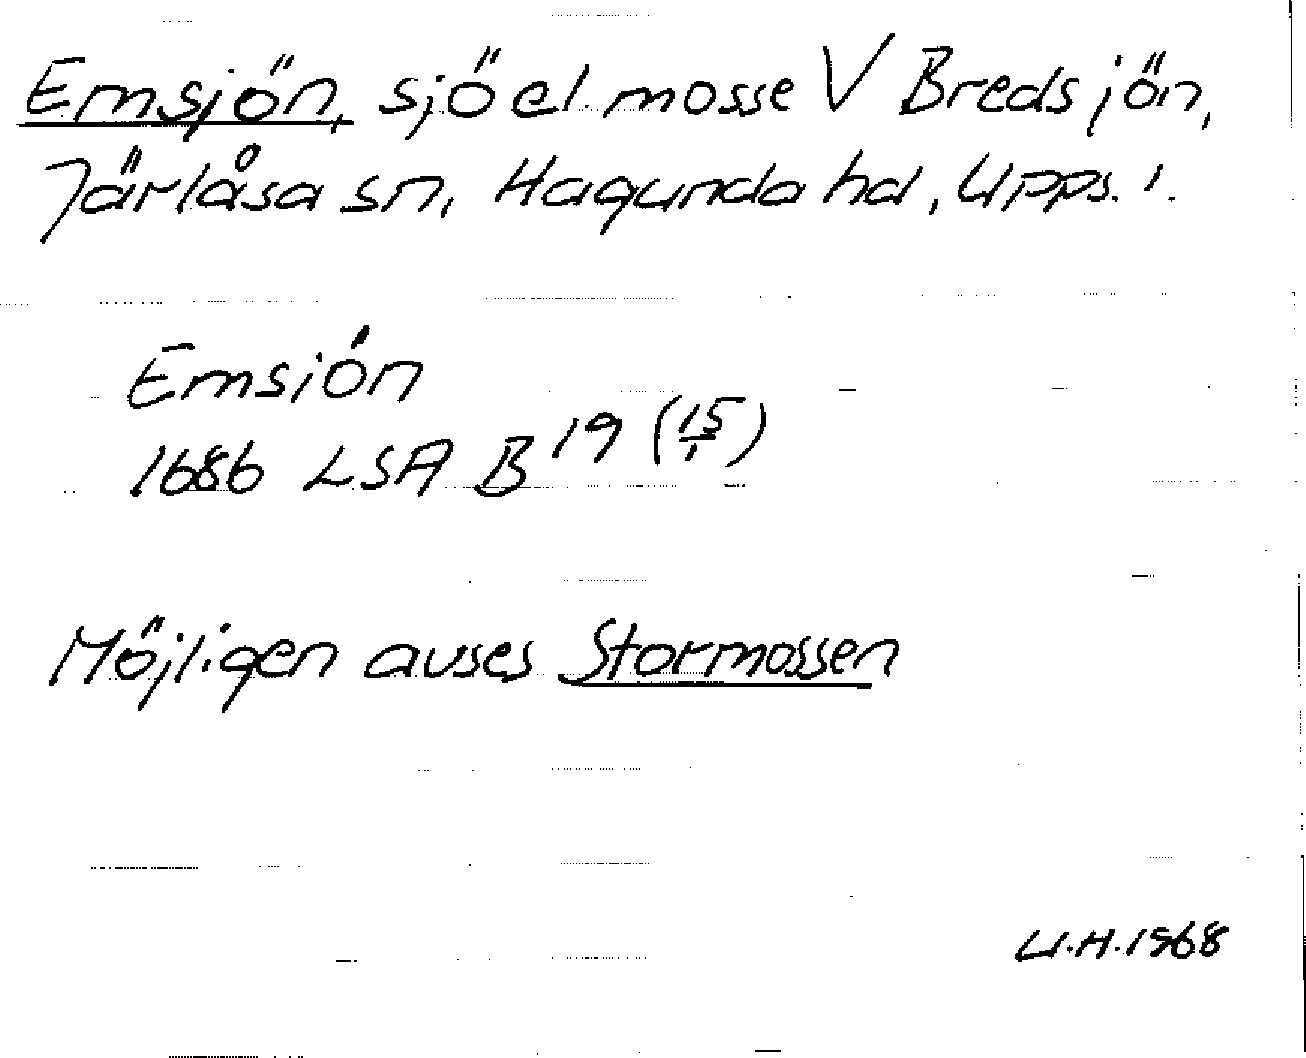 Emsjön, sjö el. mosse V Bredsjön,
Järlåsa sn, Hagunda hd, Upps. l.
Emsión
1686 LSA B 19 (15/1)
Möjligen avses Stormossen
U.H. 1968